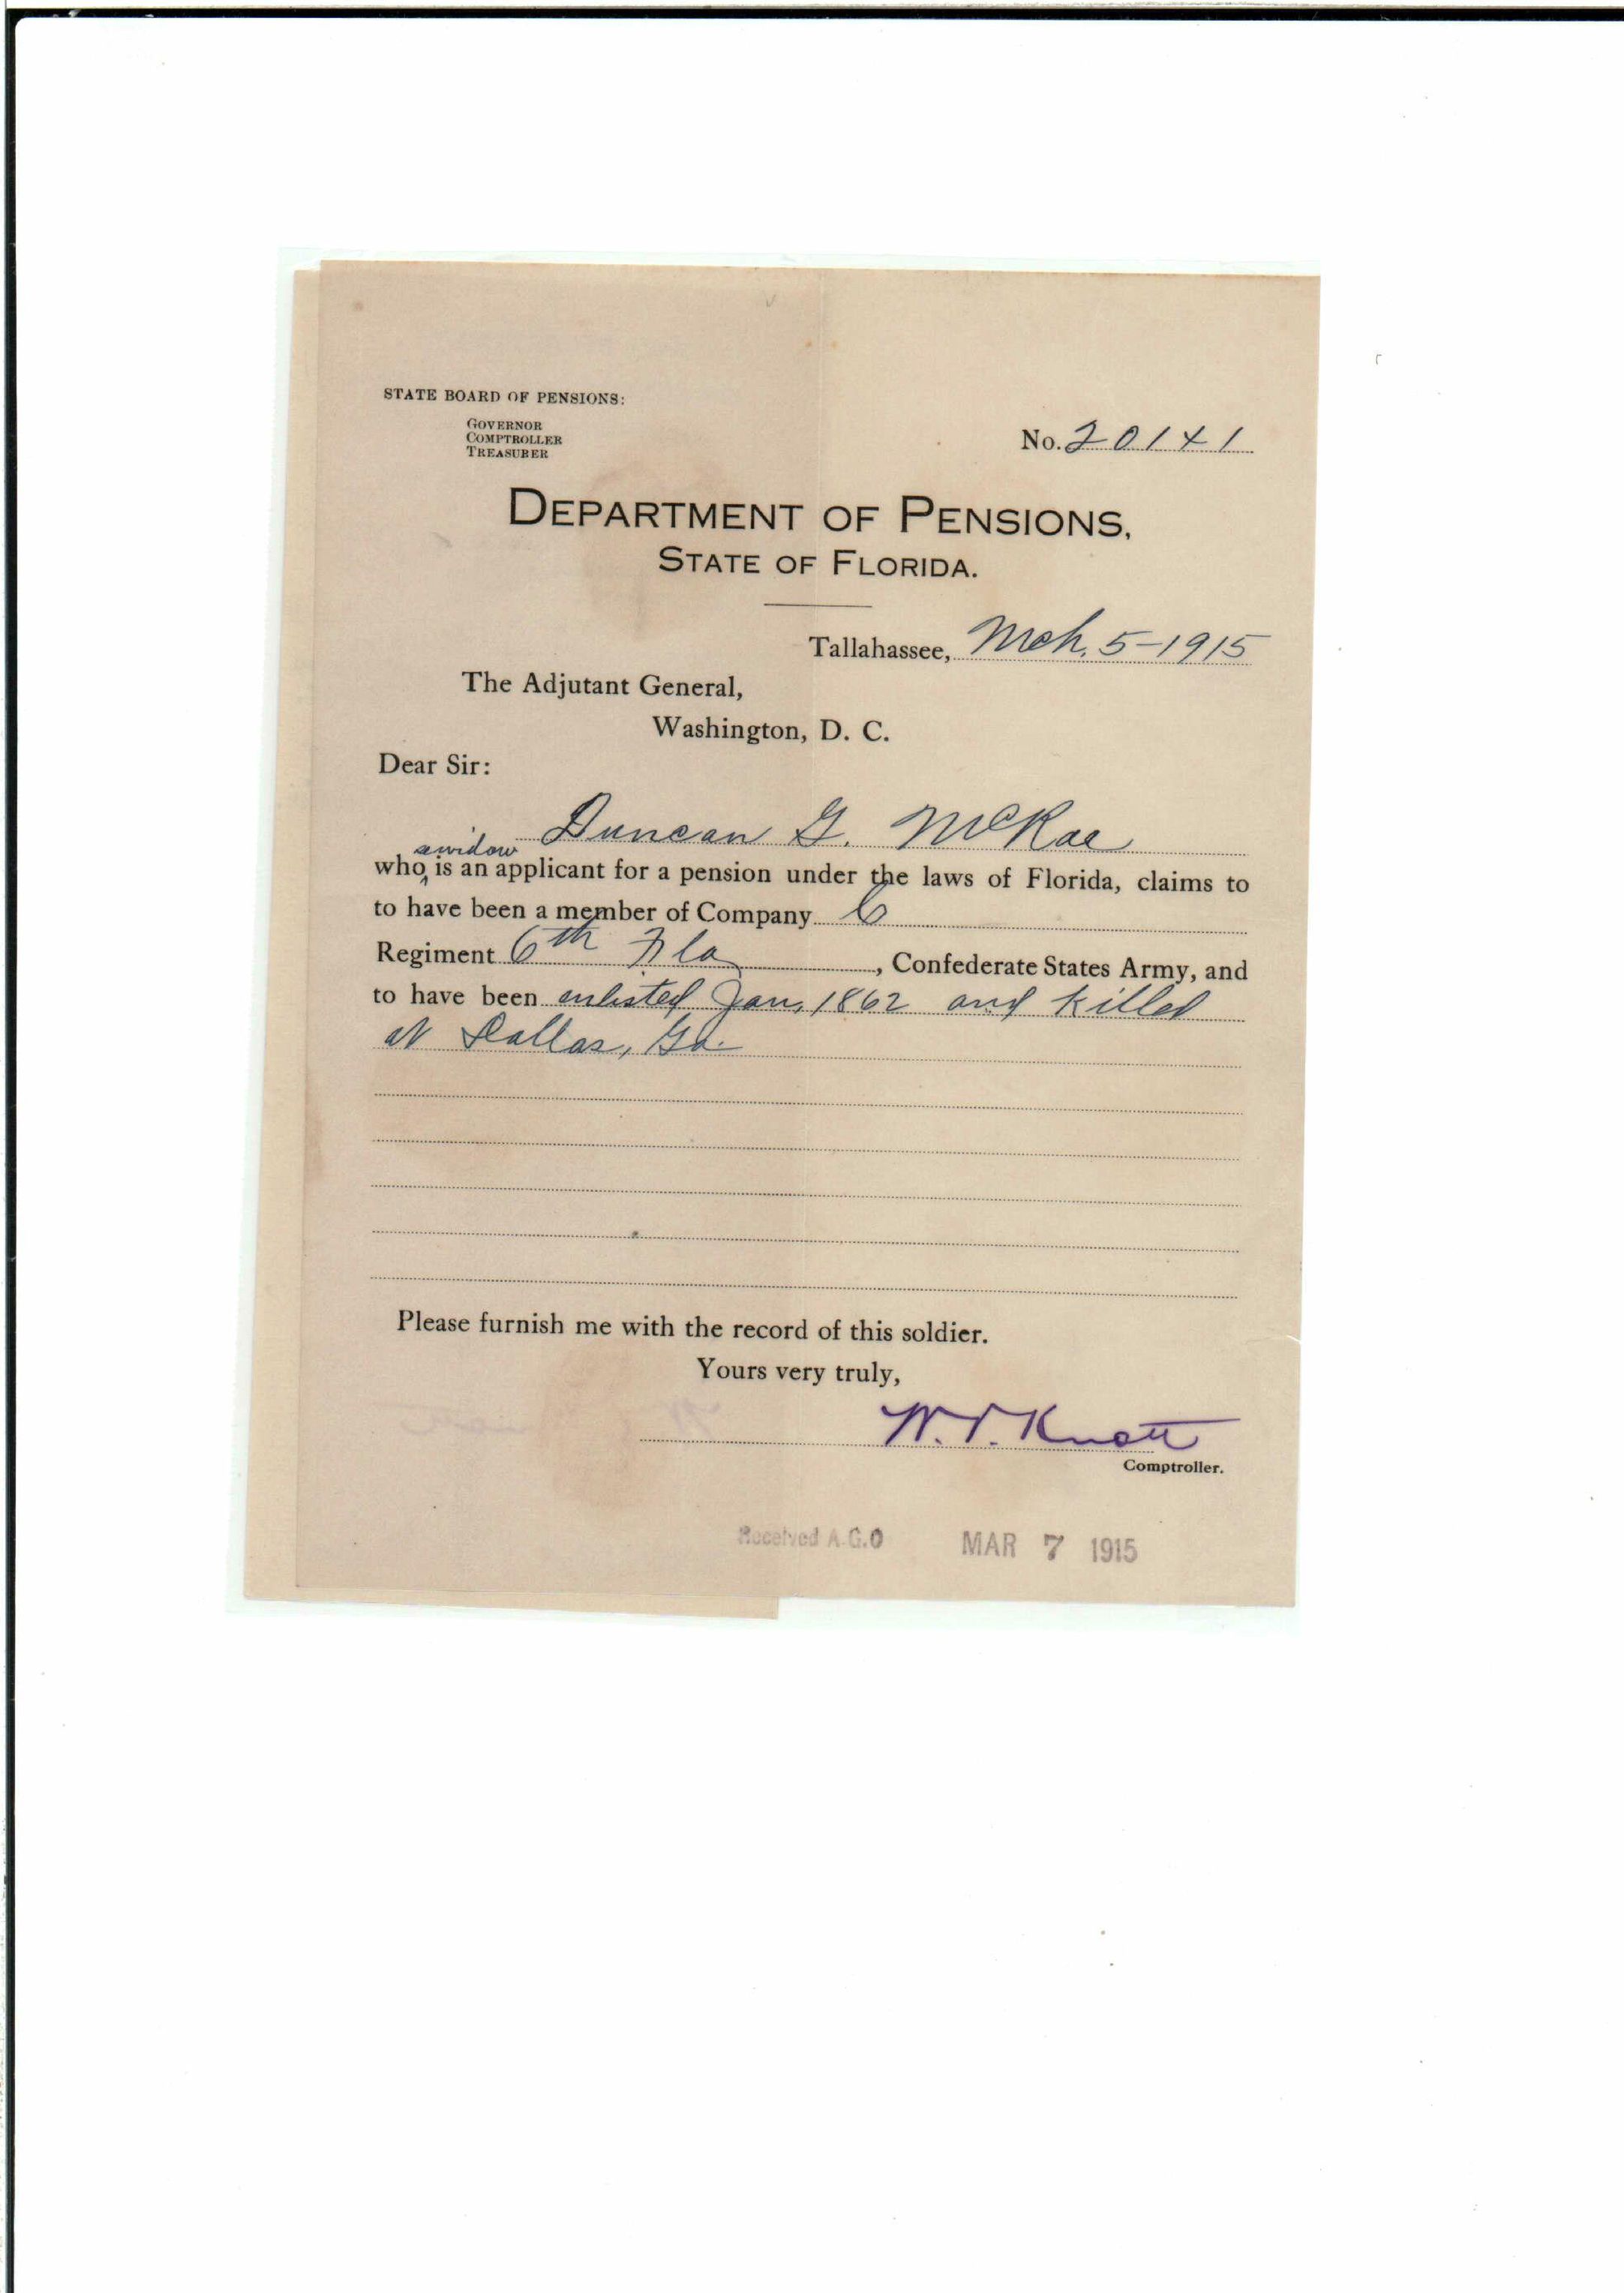 STATE BOARD OF PENSIONS:
GOVERNOR
COMPTROLLER
TREASURER
No. 20141
DEPARTMENT OF PENSIONS,
STATE OF FLORIDA.
Tallahassee, Mch. 5-1915
The Adjutant General,
Washington, D. C.
Dear Sir:
Duncan G. McRae
a widow
who is an applicant for a pension under the laws of Florida, claims to
to have been a member of Company C
Regiment 6th Fla , Confederate States Army, and
to have been enlisted Jan, 1862 and killed
at Dallas, Ga.
Please furnish me with the record of this soldier.
Yours very truly,
W. V. Knott
Comptroller.
Received A.G.O MAR 7 1915